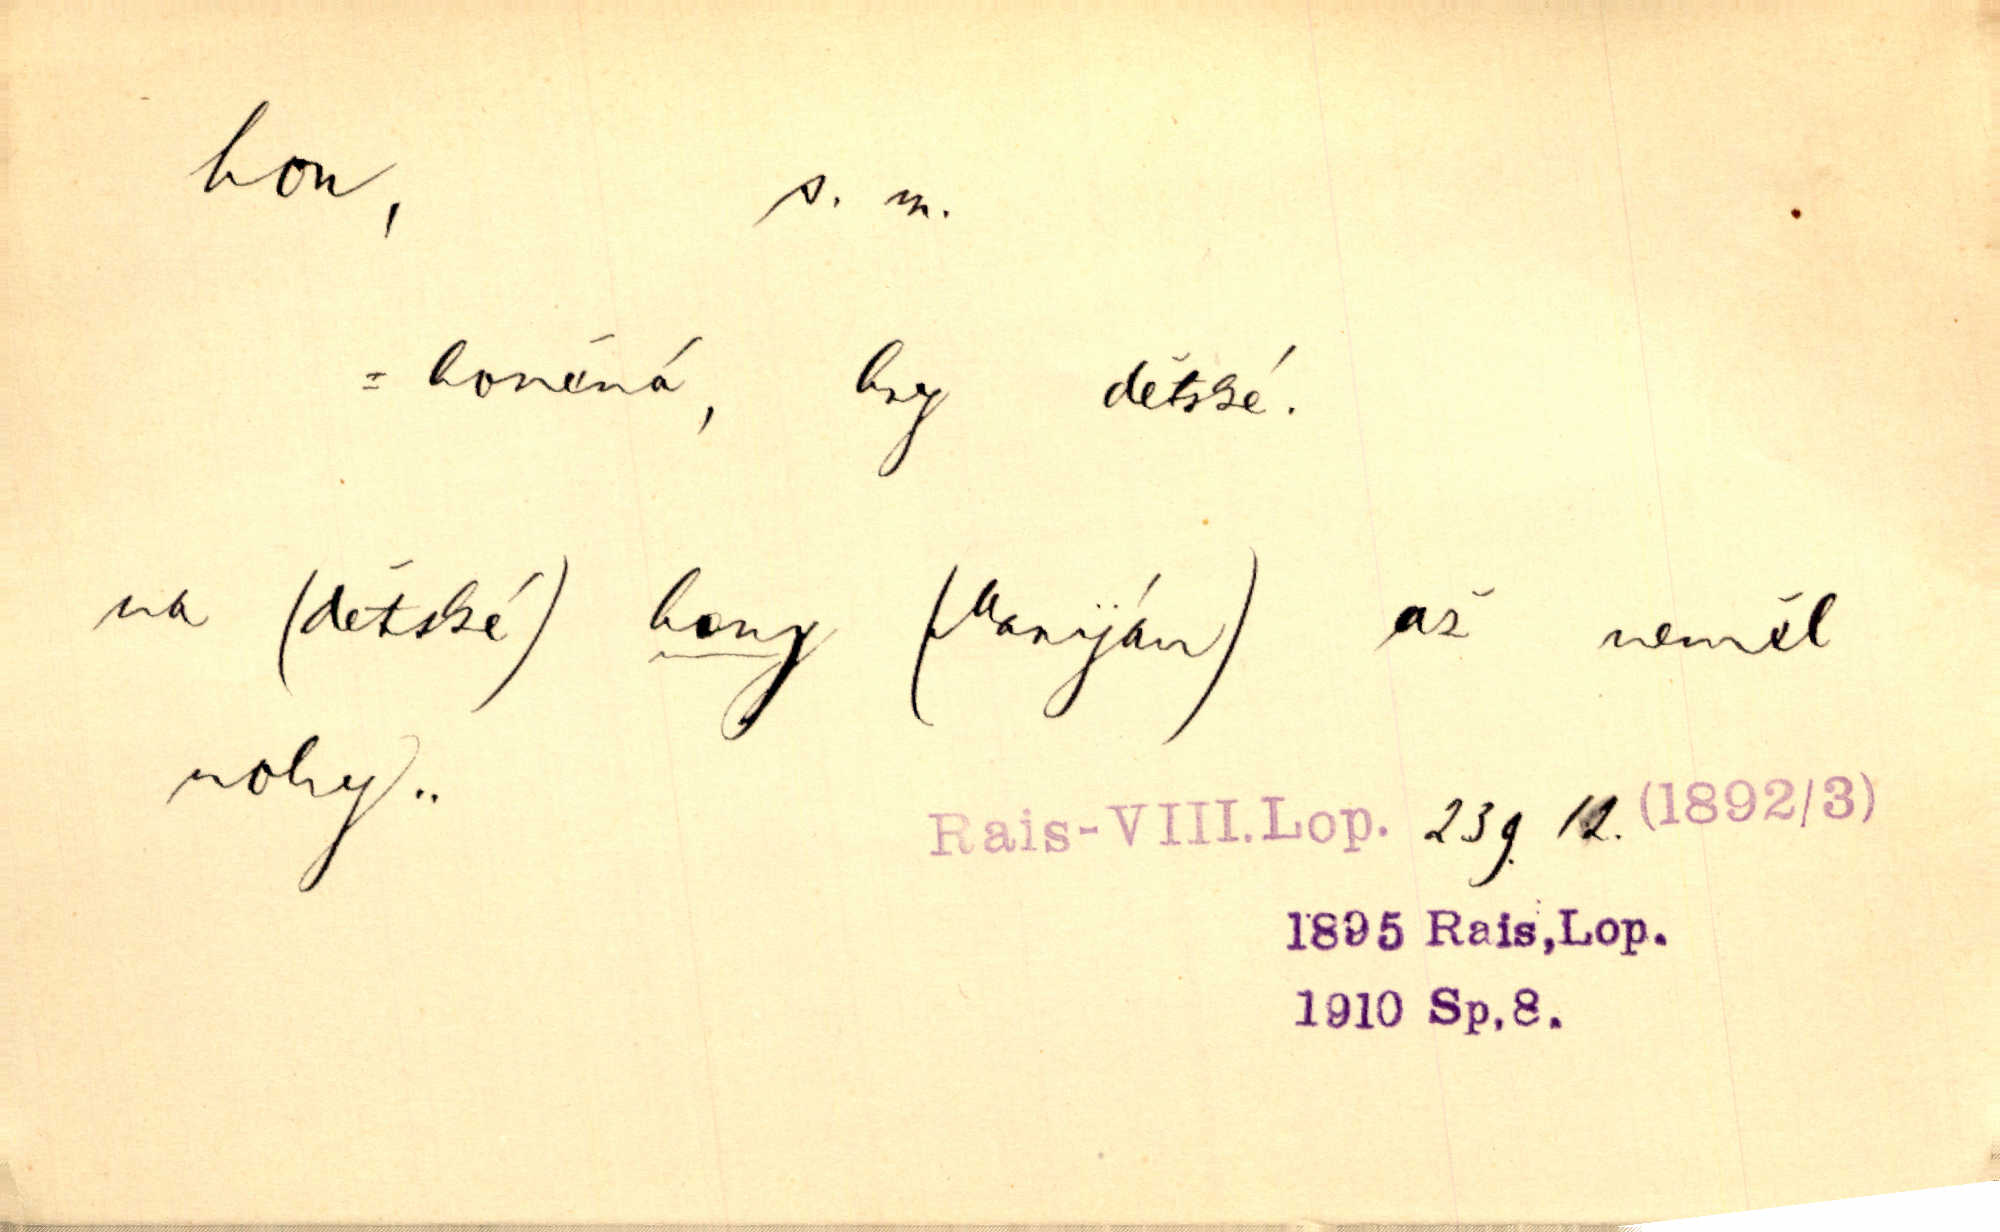 hon, s. m.
= honěná, hry dětské.
na (dětské) hony (Mariján) až neměl
nohy..
Rais-VIII.Lop. 239. 12. (1892/3)
1895 Rais,Lop.
1910 Sp.8.